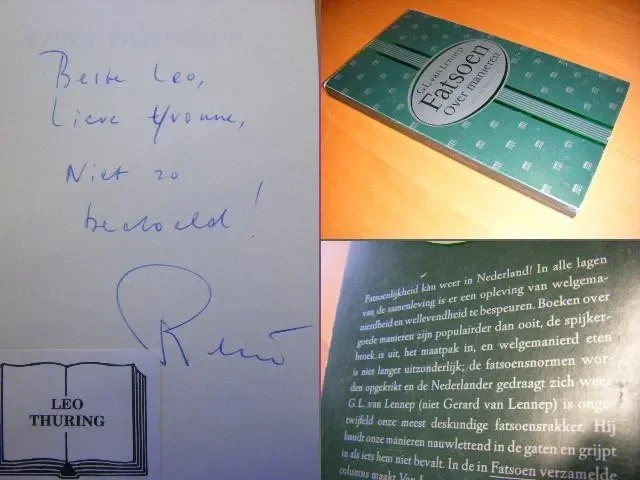 Beste Leo,
Lieve Yvonne,
Niet zo
bedoeld!
René
LEO
THURING
G.L. van Lennep
Fatsoen
Over manieren
Fatsoenlijkheid kan weer in Nederland! In alle lagen
van de samenleving is er een opleving van welgema-
nierdheid en wellevendheid te bespeuren. Boeken over
goede manieren zijn populairder dan ooit, de spijker-
broek is uit, het maatpak in, en welgemanierd eten
is niet langer uitzonderlijk; de fatsoensnormen wor-
den opgekrikt en de Nederlander gedraagt zich weer.
G.L. van Lennep (niet Gerard van Lennep) is onge-
twijfeld onze meest deskundige fatsoensrakker. Hij
houdt onze manieren nauwlettend in de gaten en grijpt
in als iets hem niet bevalt. In de in Fatsoen verzamelde
columns maakt Van